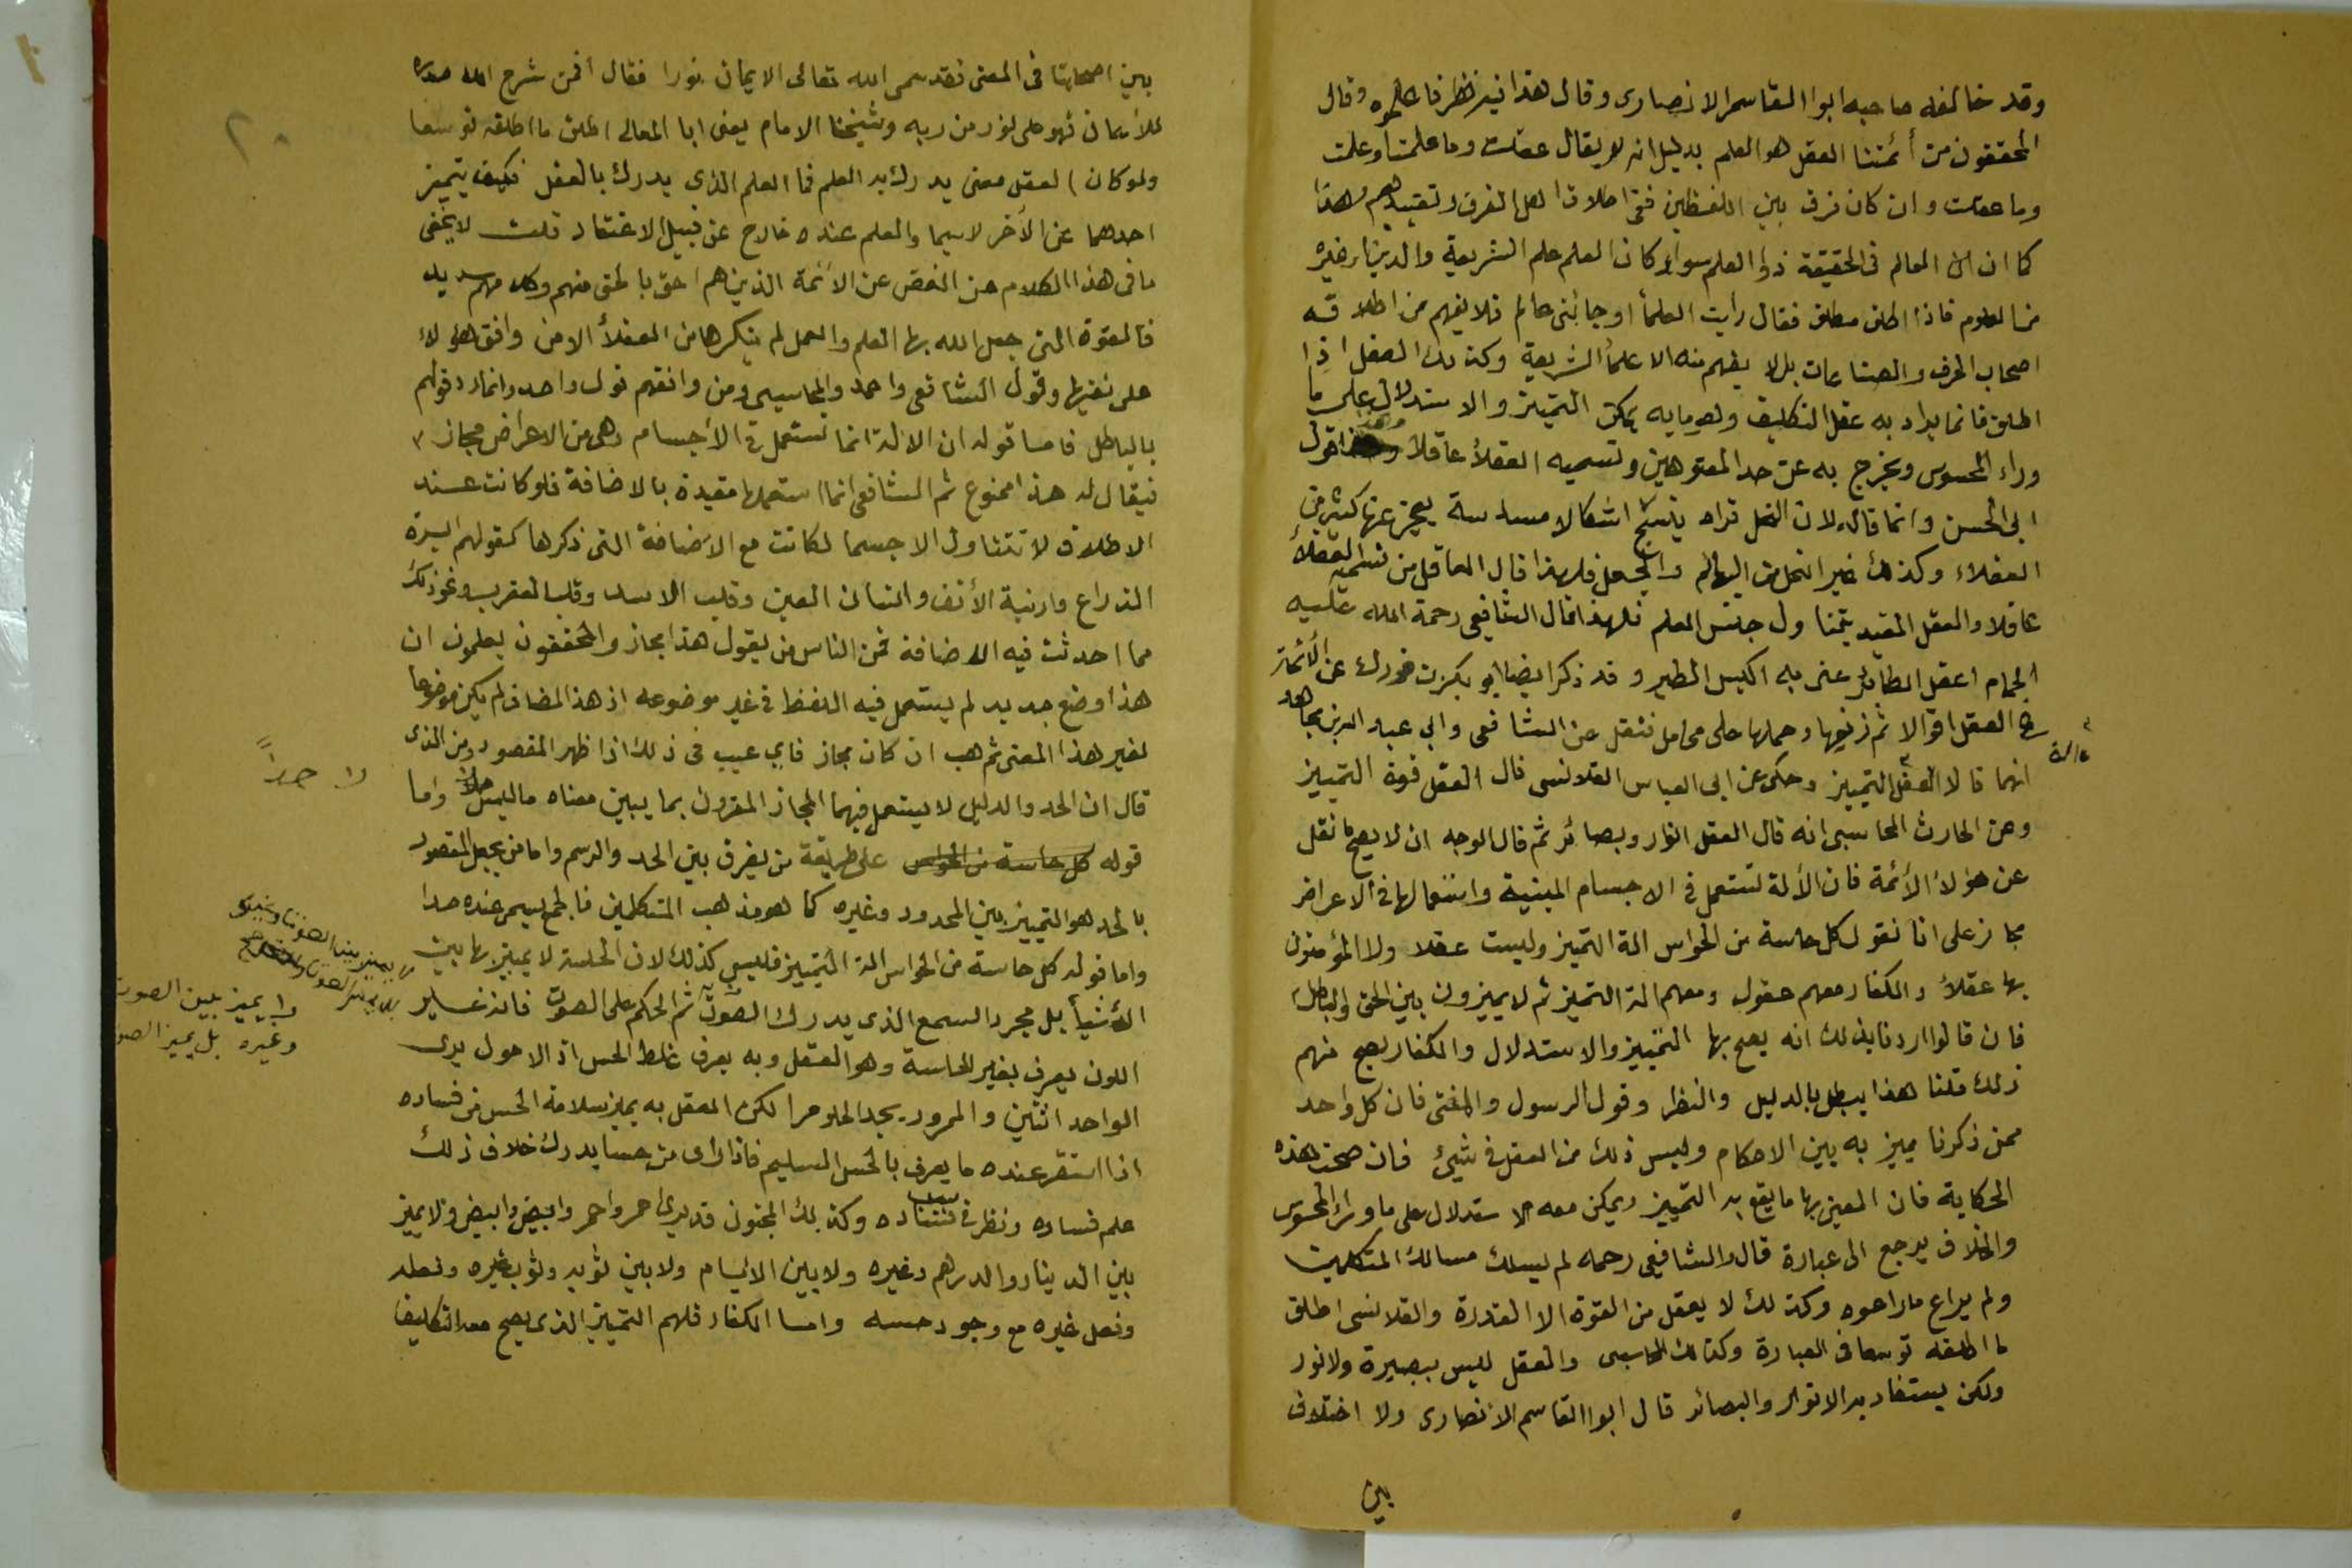 وقد خالفه صاحبه ابوا القاسم الانصارى وقال هذا فيه نظر فاعلموه وقال
المحققون من أئمتنا العقل هو العلم بدليل انه لا يقال عقلت وما علمت أو علمت
وما عقلت وان كان فرق بين اللفظين ففى اطلاق اهل العرف وتقييدهم وهذا
كما ان العالم فى الحقيقة ذوا العلم سواء كان العلم علم الشريعة والدين او غيره
من العلوم فاذا اطلق مطلق فقال رأيت العلمأ او جائنى عالم فلا يفهم من اطلاقه
اصحاب الحرف والصناعات بل لا يفهم منه الا علمأ الشريعة وكذلك العقل اذا
اطلق فانما يراد به عقل التكليف وهو مابه يمكن التمييز والاستدلال على ما
وراء المحسوس ويخرج به عن حد المعتوهين وتسميه العقلأ عاقلا وهذا قول
ابى الحسن وانما قاله لان النحل تراه ينسج اشكالا مسدسة يعجز عنها كثير من
العقلاء وكذلك غير النحل من البهائم فلهذا قال العاقل من تسميه العقلأ
عاقلا والعقل المقيد يتناول جنس العلم فلهذا قال الشافعى رحمة الله عليه
الحمام اعقل الطائر عنى به اكيس الطير وقد ذكر ايضا ابو بكر بن فورك عن الأئمة
فى العقل اقوالا ثم زيفها وحملها على محامل فنقل عن الشافعى وابي عبد الله بن مجاهد
انهما قالا العقل التمييز وحكى عن ابى العباس القلانسى قال العقل قوة التمييز
ءالة
وعن الحارث المحاسبى انه قال العقل انوار وبصائر ثم قال الوجه ان لا يصح ما نقل
عن هؤلأ الأئمة فان الألة تستعمل فى الاجسام المبنية واستعمالها فى الاعراض
مجاز على انا نقول كل حاسة من الحواس الة التميز وليست عقلا ولا المؤمنون
بها عقلأ والكفار معهم عقول ومعهم الة التميز ثم لا يميزون بين الحق والباطل
فان قالوا اردنا بذلك انه يصح بها التمييز والاستدلال والكفار يصح منهم
ذلك قلنا هذا يبطل بالدليل والنظر وقول الرسول والمفتى فان كل واحد
ممن ذكرنا يميز به بين الاحكام وليس ذلك من العقل فى شيئ فان صحت هذه
الحكاية فان المعنى بها ما يقع به التمييز ويمكن معه الاستدلال على ما وراء المحسوس
والخلاف يرجع الى عبارة قال والشافعى رحمه لم يسلك مسالك المتكلمين
ولم يراع ما راعوه وكذلك لا يعقل من القوة الا القدرة والقلانسى اطلق
ما اطلقه توسعا فى العبارة وكذلك المحاسبى والعقل ليس ببصيرة ولا نور
ولكن يستفاد به الانوار والبصائر قال ابوا القاسم الانصارى ولا اختلاف
بين
٢٠
بين اصحابنا فى المعنى فقد سمى الله تعالى الايمان نورا فقال أفمن شرح الله صدره
للاسلام فهو على نور من ربه وشيخنا الامام يعنى ابا المعالى اطلق ما اطلقه توسعا
ولو كان العقل معنى يدرك به العلم فما العلم الذى يدرك بالعقل فكيف يتميز
احدهما عن الآخر لا سيما والعلم عنده خارج عن قبيل الاعتقاد قلت لا يخفى
ما فى هذا الكلام من الغض عن الائمة الذين هم احق بالحق منهم وكلامهم سديد
فالقوة التى جعل الله بها العلم والعمل لم ينكرها من العقلأ الا من وافق هؤلاء
على نفيها وقول الشافعى واحمد والمحاسبى ومن وافقهم قول واحد وانما رد قولهم
بالباطل فاما قوله ان الالة انما تستعمل فى الاجسام وهى من الاعراض مجاز
فيقال له هذا ممنوع ثم الشافعى انما استعملها مقيدة بالاضافة فلو كانت عند
الاطلاق لا تتناول الا جسما لكانت مع الاضافة التى ذكرها كقولهم ابرة
الذراع وارنبة الأنف وانسان العين وقلب الاسد وقلب العقرب ونحو ذلك
مما احدثت فيه الاضافة فمن الناس من يقول هذا مجاز والمحققون يعلمون ان
هذا وضع جديد لم يستعمل فيه اللفظ فى غير موضوعه اذ هذا المضاف لم يكن موضوعا
لغير هذا المعنى ثم هب ان كان مجاز فاي عيب فى ذلك اذا ظهر المقصود ومن الذى
قال ان الحد والدليل لا يستعمل فيهما المجاز المقرون بما يبين معناه ماليس واما
قوله كل حاسة من الحواس على طريقة من يفرق بين الحد والرسم واما من يجعل المقصود
بالحد هو التمييز بين المحدود وغيره كما هو مذهب المتكلمين فالجمع يسمى عنده حدا
واما قوله كل حاسة من الحواس الة التمييز فليس كذلك لان الحاسة لا يميز بها بين
الأشيأ بل مجرد السمع الذى يدرك الصوت ثم الحكم على الصوت فانه غير
اللون يعرف بغير الحاسة وهو العقل وبه يعرف غلط الحس اذ الاحول يرى
الواحد اثنين والممرور يجد الحلو مرا لكن العقل به يميز سلامة الحس من فساده
اذا استقر عنده ما يعرف بالحس السليم فاذا راى من حسا يدرك خلاف ذلك
علم فساده ونظر فى سبب فساده وكذلك المجنون قد يرى احمر واحمر وابيض وابيض ولا يميز
بين الدينار والدرهم وغيره ولا بين الايام ولا بين ثوبه وثوب غيره وفعله
وفعل غيره مع وجود حسه واما الكفار فلهم التمييز الذى يصح معه التكليف
لا حداً
لا يميز بين الصوت
لا يميز بين الصوت
وغيره بل يميز الصو